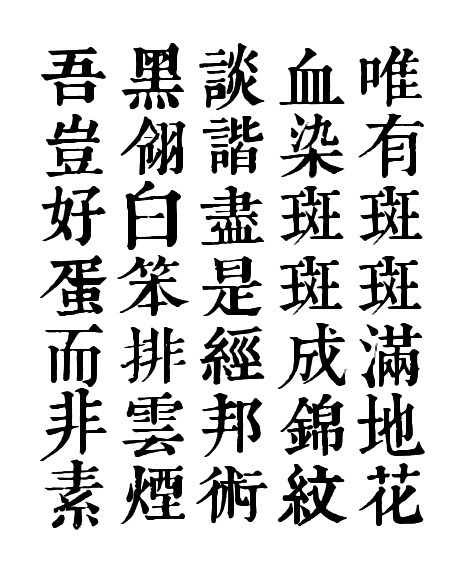 唯有斑斑滿地花
血染斑斑成錦紋
談諧盡是經邦術
黑翎白笨排雲煙
吾豈好蛋而非素